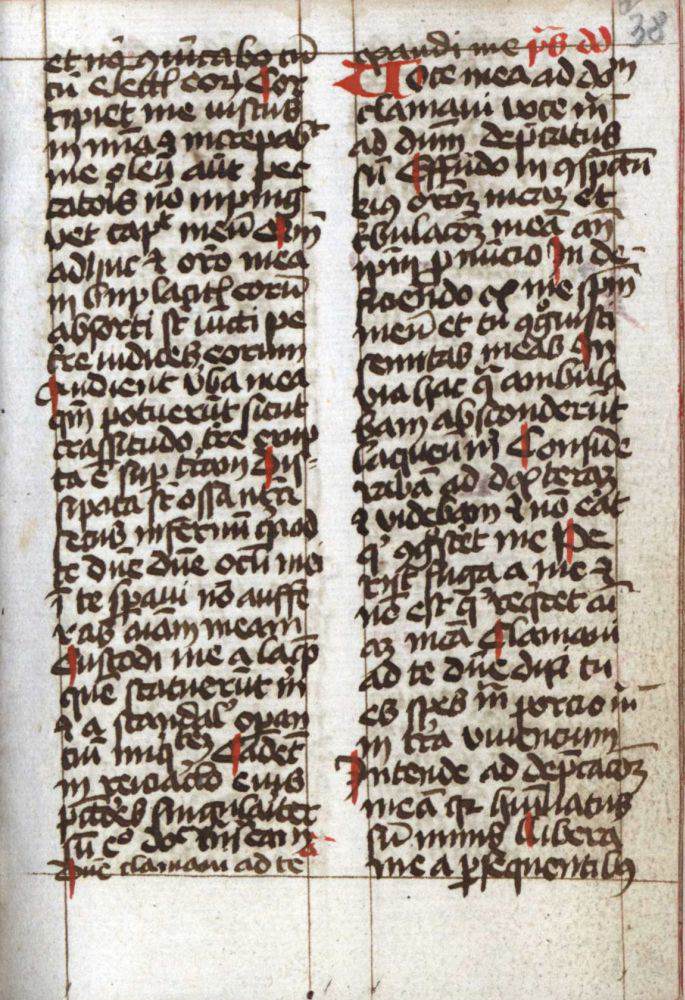 38
et nō ꝯmūicabo cū
cū electł eoꝝ Cor
ripiet me iustus
in mīa ⁊ increpabᵗ
me oleū aūt pec
catoris nō inping
vet capᵗ meū Qm̄
adhuc ⁊ orō mea
in bn̄placitł eorū
absorti sͭ iūcti pe
tre iudices eorum
Audient v̄ba mea
qm̄ potuerūt sicut
crassitudo tr̄e erup
ta ē sup terram Dis
sipata sͭ ossa nr̄a
secus infernū quia ad
te dn̄e dn̄e oculi mei
ī te speraui nō auffe
ras aīam meam
Custodi me a laqͦ
quē statuerūt m̄
⁊ a scandalˢ operan
ciū iniqͥtez Cadēt
in reciaclō eius
pctōres singulariter
sū egͦ donͨ trāseam
Dn̄e clamaui ad te
exaudi me ps̄ dd
Uoce mea ad dōm
clamaui voce m̄
ad dn̄m dep̄catus
sū Effūdo in ꝯspc̄tu
eiꝯ orōꝫ meaꝫ et
t̓bulacōꝫ meā an̄
ip̄m ꝓnūcio In de
ficiendo ex me sp̄m
meū et tu ꝯgͦuisti
semitas meas In
via hac qͣ ambula
bam absconderūt
laqueū m̄ Conside
rabā ad dexteraꝫ
⁊ videbam ⁊ nō erat
qͥ ꝯgͦsc̄et me Pe
rijt fuga a me ⁊
nō est qͥ reqͥret aī
aꝫ meā Clamaui
ad te dn̄e dixi tu
es spes m̄ porcio m̄
in tr̄ra viuencium
Intende ad dep̄cacōꝫ
meā qꝛ humiliatus
sū nimis Libera
me a ꝑsequentibꝯ